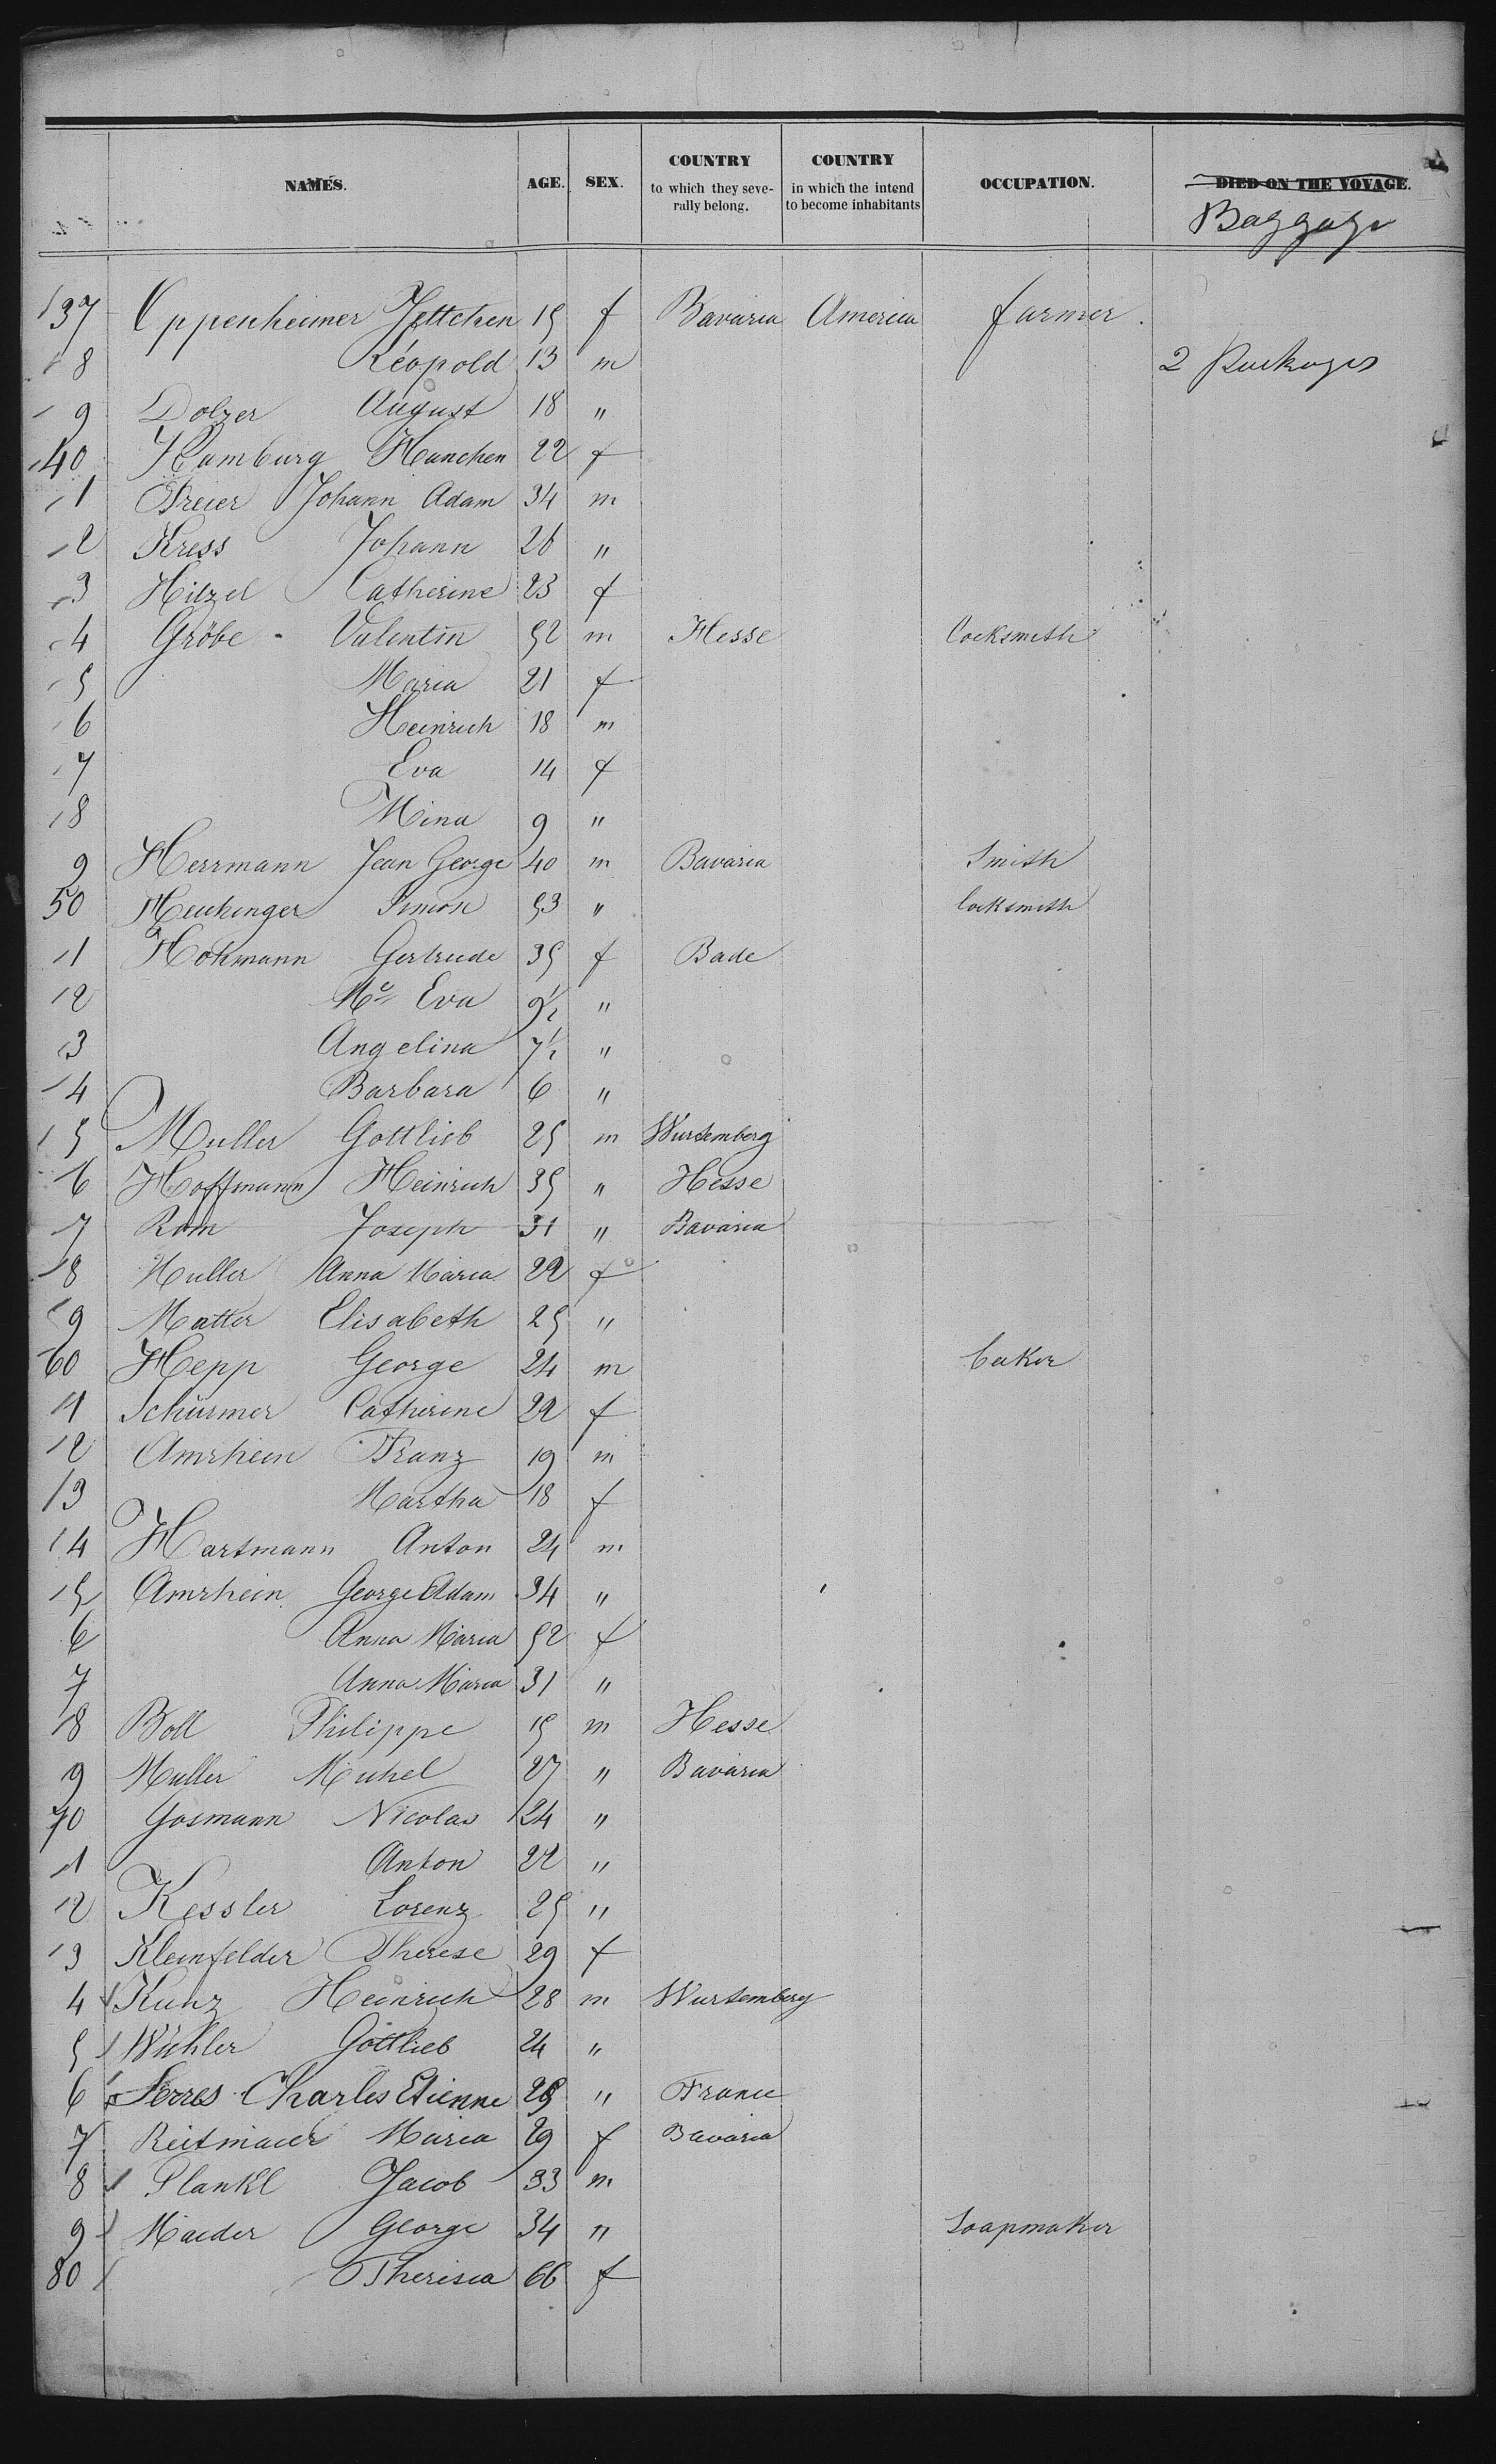 NAMES. AGE. SEX. COUNTRY to which they seve- rally belong. COUNTRY in which the intend to become inhabitants OCCUPATION. DIED ON THE VOYAGE.
Baggage
137 Oppenheimer Jettchen 15 f Bavaria America farmer.
8 Léopold 13 m 2 Packages
9 Dolzer August 18 "
40 Hamburg Hanchen 22 f
1 Freier Johann Adam 34 m
2 Kress Johann 26 "
3 Hitzel Catherine 23 f
4 Gröbe - Valentin 52 m Hesse Locksmith
5 Maria 21 f
6 Heinrich 18 m
7 Eva 14 f
8 Mina 9 "
9 Herrmann Jean George 40 m Bavaria Smith
50 Heuchinger Simon 53 " locksmith
1 Hohmann Gertrude 35 f Bade
2 Me Eva 9½ "
3 Angelina 7½ "
4 Barbara 6 "
5 Muller Gottlieb 25 m Wurtemberg
6 Hoffmann Heinrich 35 " Hesse
7 Rom Joseph 31 " Bavaria
8 Muller Anna Maria 22 f
9 Matter Elisabeth 25 "
60 Hepp George 24 m baker
1 Schürmer Catherine 22 f
2 Amrhein Franz 19 m
3 Martha 18 f
4 Hartmann Anton 24 m
5 Amrhein George Adam 34 "
6 Anna Maria 52 f
7 Anna Maria 31 "
8 Boll Philippe 15 m Hesse
9 Muller Michel 27 " Bavaria
70 Gosmann Nicolas 24 "
1 Anton 22 "
2 Kessler Lorenz 25 "
3 Kleinfelder Therese 29 f
4 Kunz Heinrich 28 m Wurtemberg
5 Wichler Gottlieb 24 "
6 Serres Charles Etienne 29 " France
7 Reitmaier Maria 29 f Bavaria
8 Plankl Jacob 33 m
9 Maeder George 34 " Soapmaker
80 Theresia 66 f